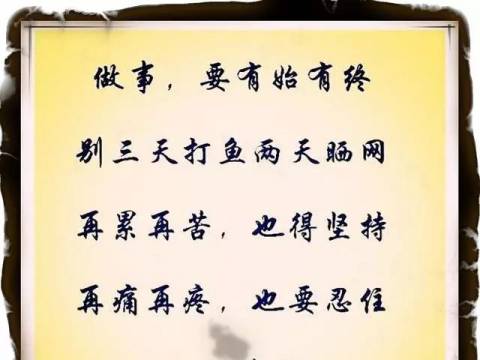 做事，要有始有终
别三天打鱼两天晒网
再累再苦，也得坚持
再痛再疼，也要忍住